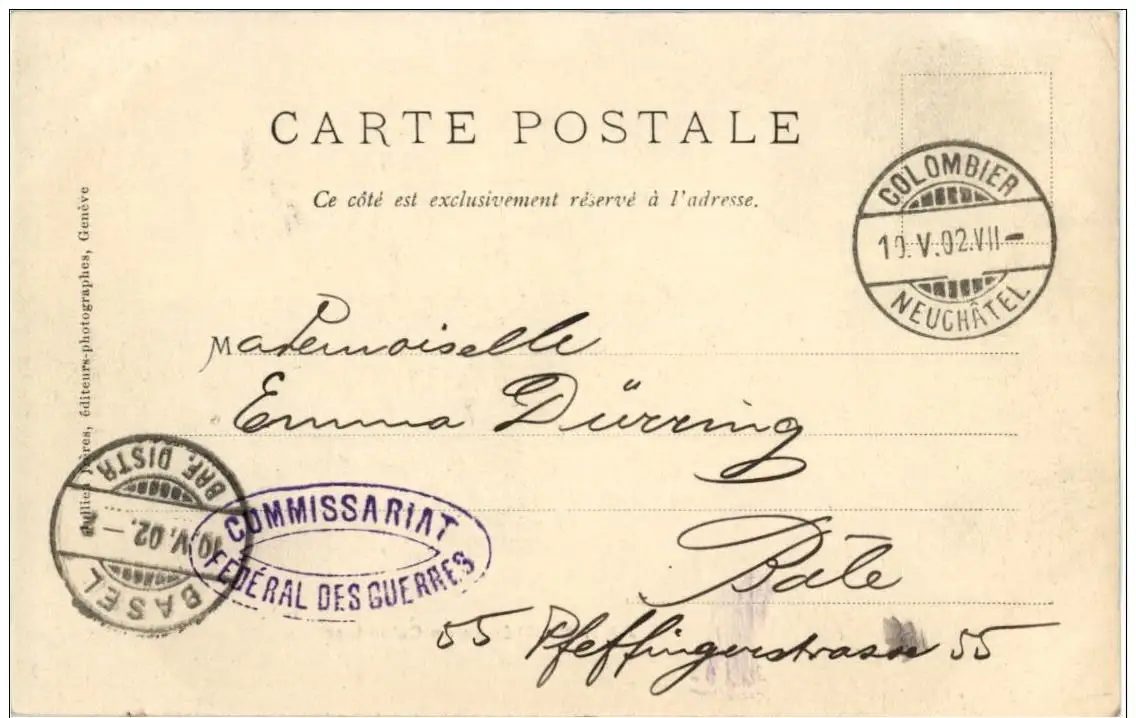 CARTE POSTALE
Ce côté est exclusivement réservé à l'adresse.
COLOMBIER
10.V.02.VII–
NEUCHÂTEL
Mademoiselle
Emma Dürring
Bâle
55 Pfeffingerstrasse 55
COMMISSARIAT
FÉDÉRAL DES GUERRES
BASEL
10.V.02.–
BRF. DISTR.
Jullien Frères, éditeurs-photographes, Genève